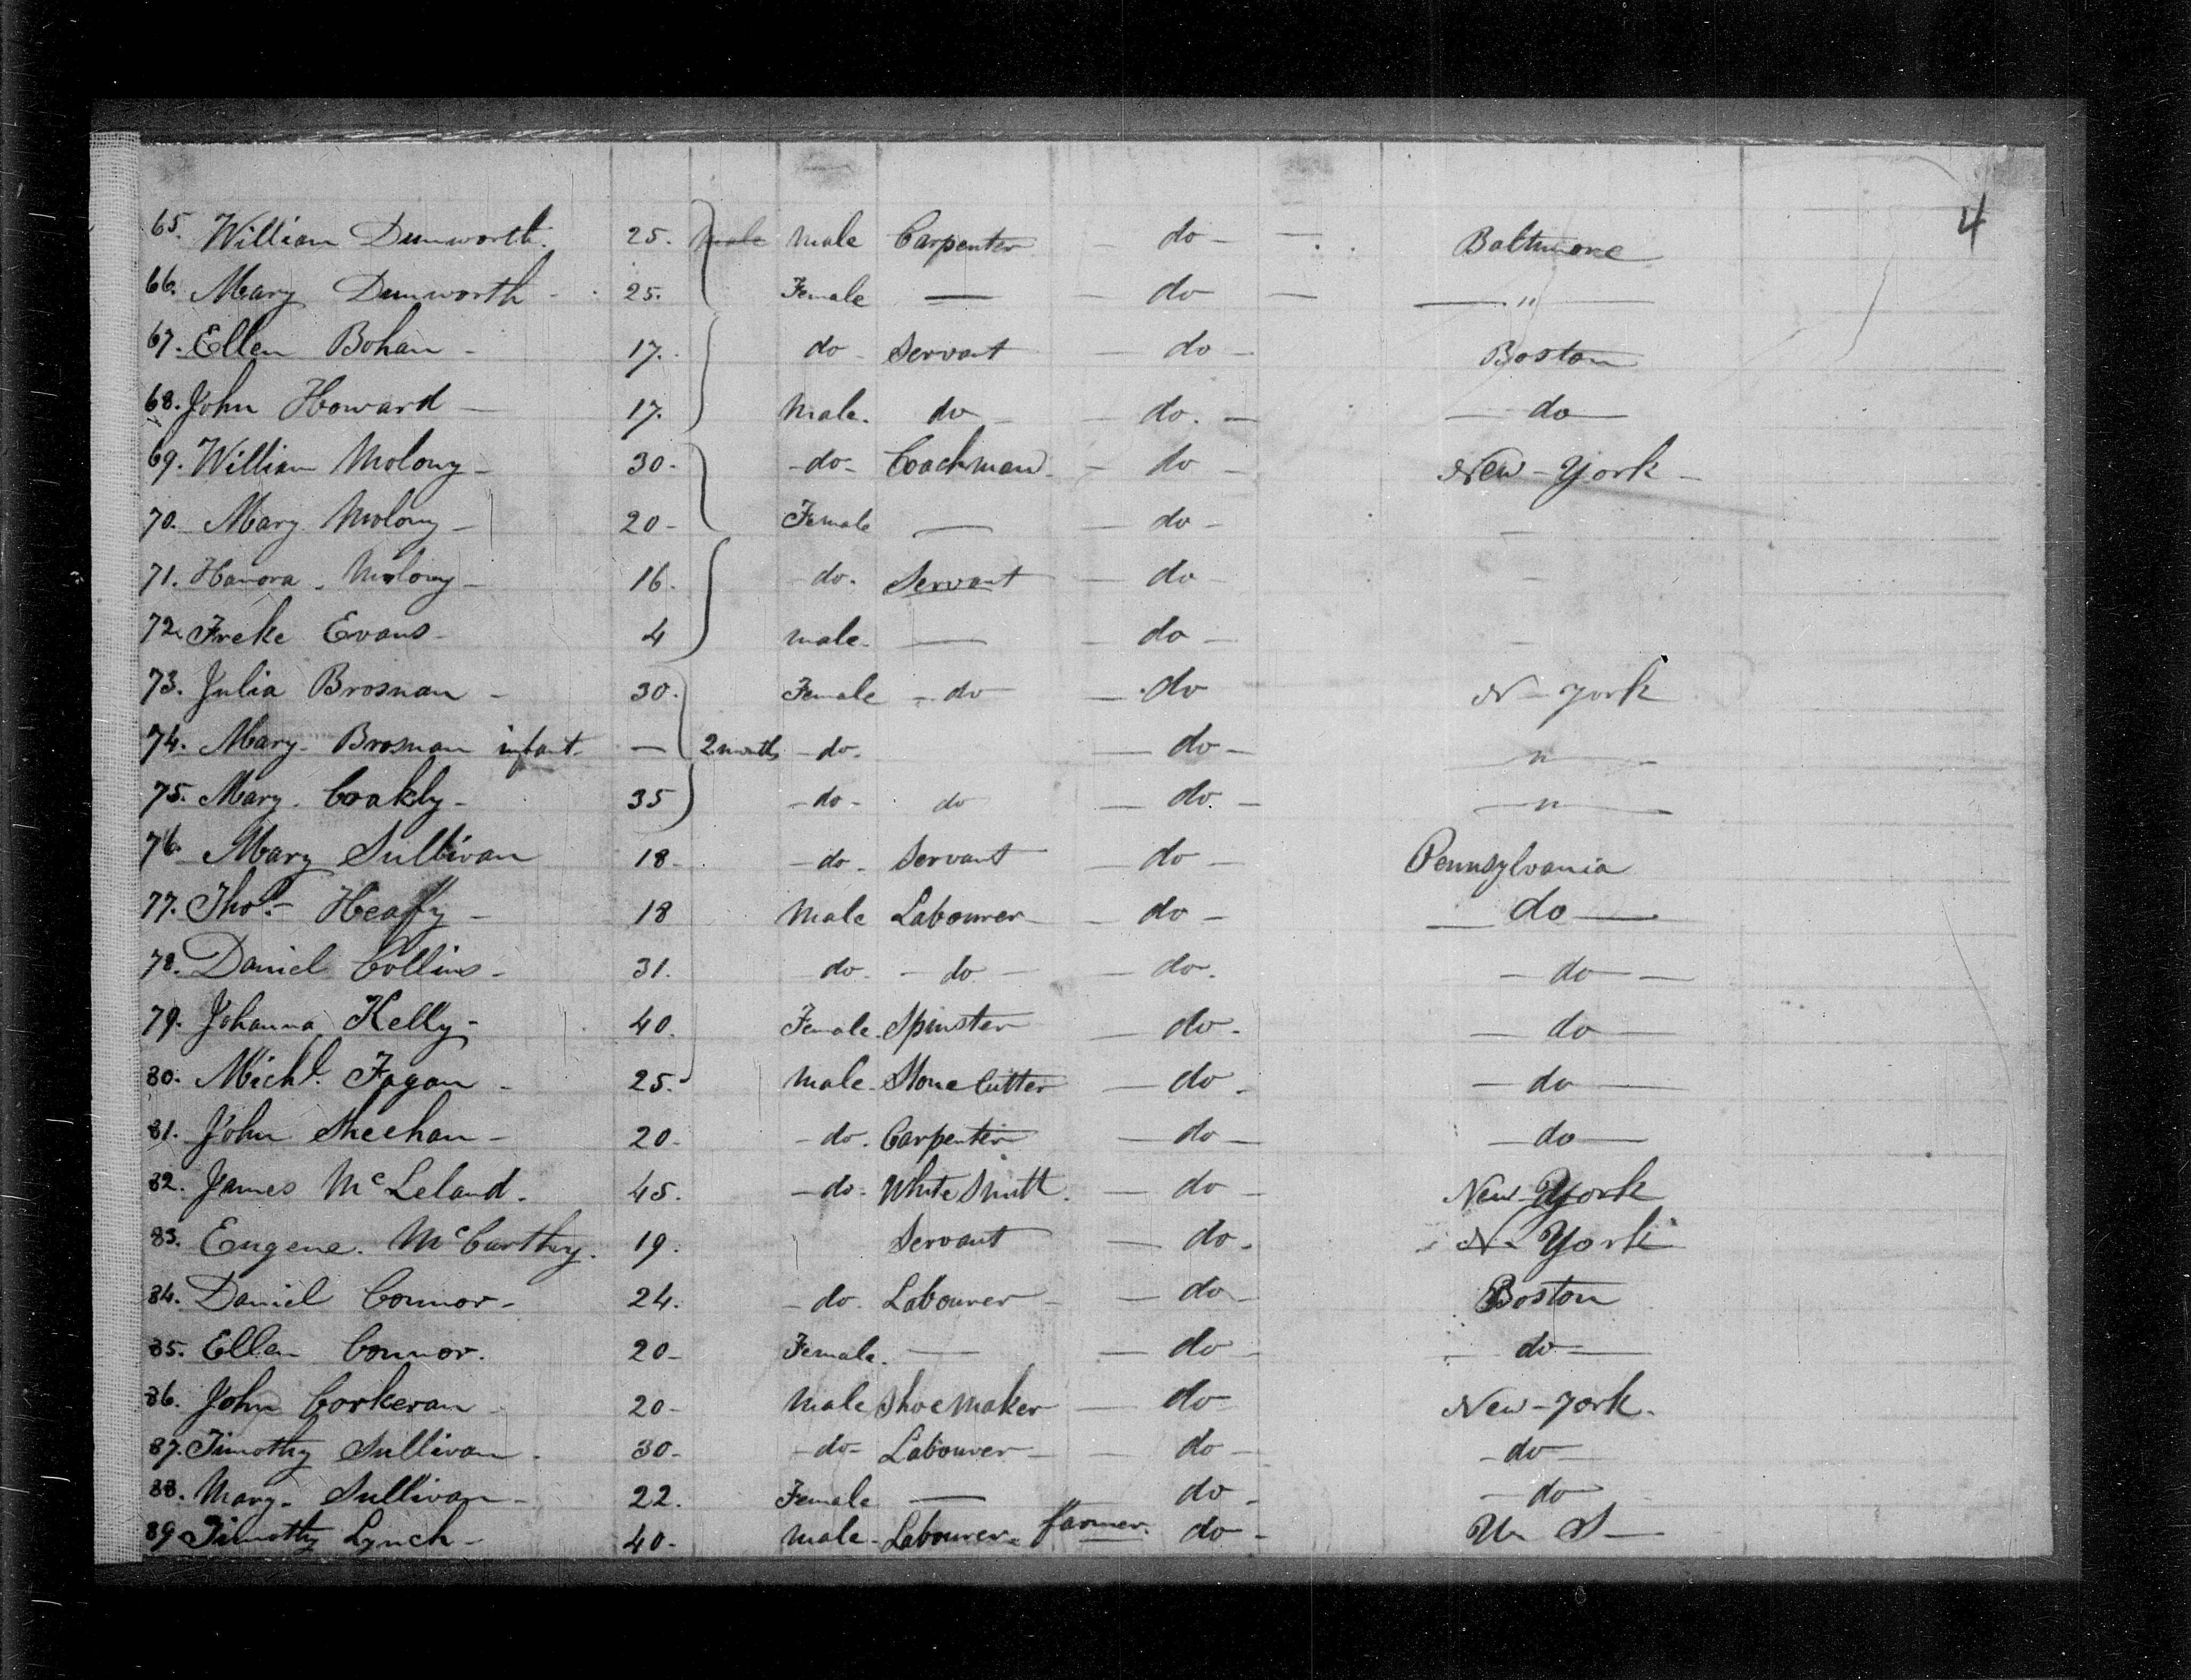 4
65. William Dunworth. 25. male male Carpenter do Baltimore
66. Mary Dunworth 25. Female — do "
67. Ellen Bohan 17. do Servant do Boston
68. John Howard 17. Male. do do. do
69. William Molony 30. do Coachman do New-York
70. Mary Molony 20 Female — do —
71. Hanora Molony 16. do. Servant do —
72. Freke Evans 4 male. — do —
73. Julia Brosnan 30. Female do do N-York
74. Mary Brosnan infant — 2 months do. do "
75. Mary Coakly 35 do do do. "
76. Mary Sullivan 18 do Servant do Pennsylvania
77. Thos. Heaffy 18 Male Labourer do do
78. Daniel Collins 31. do. do do. do
79. Johanna Kelly 40. Female Spinster do. do
80. Michl. Fagan 25. Male Stone Cutter do do
81. John Sheehan 20. do. Carpenter do do
82. James McLeland. 45. do. White Smith. do New-York
83. Eugene. McCarthy. 19. Servant do. N-York
84. Daniel Connor 24. do. Labourer do Boston
85. Ellen Connor. 20 Female. — do do
86. John Corkeran 20 Male Shoe Maker do New-York.
87. Timothy Sullivan 30. do Labourer do do
88. Mary Sullivan 22. Female — do do
89. Timothy Lynch 40. male. Labourer farmer. do U S